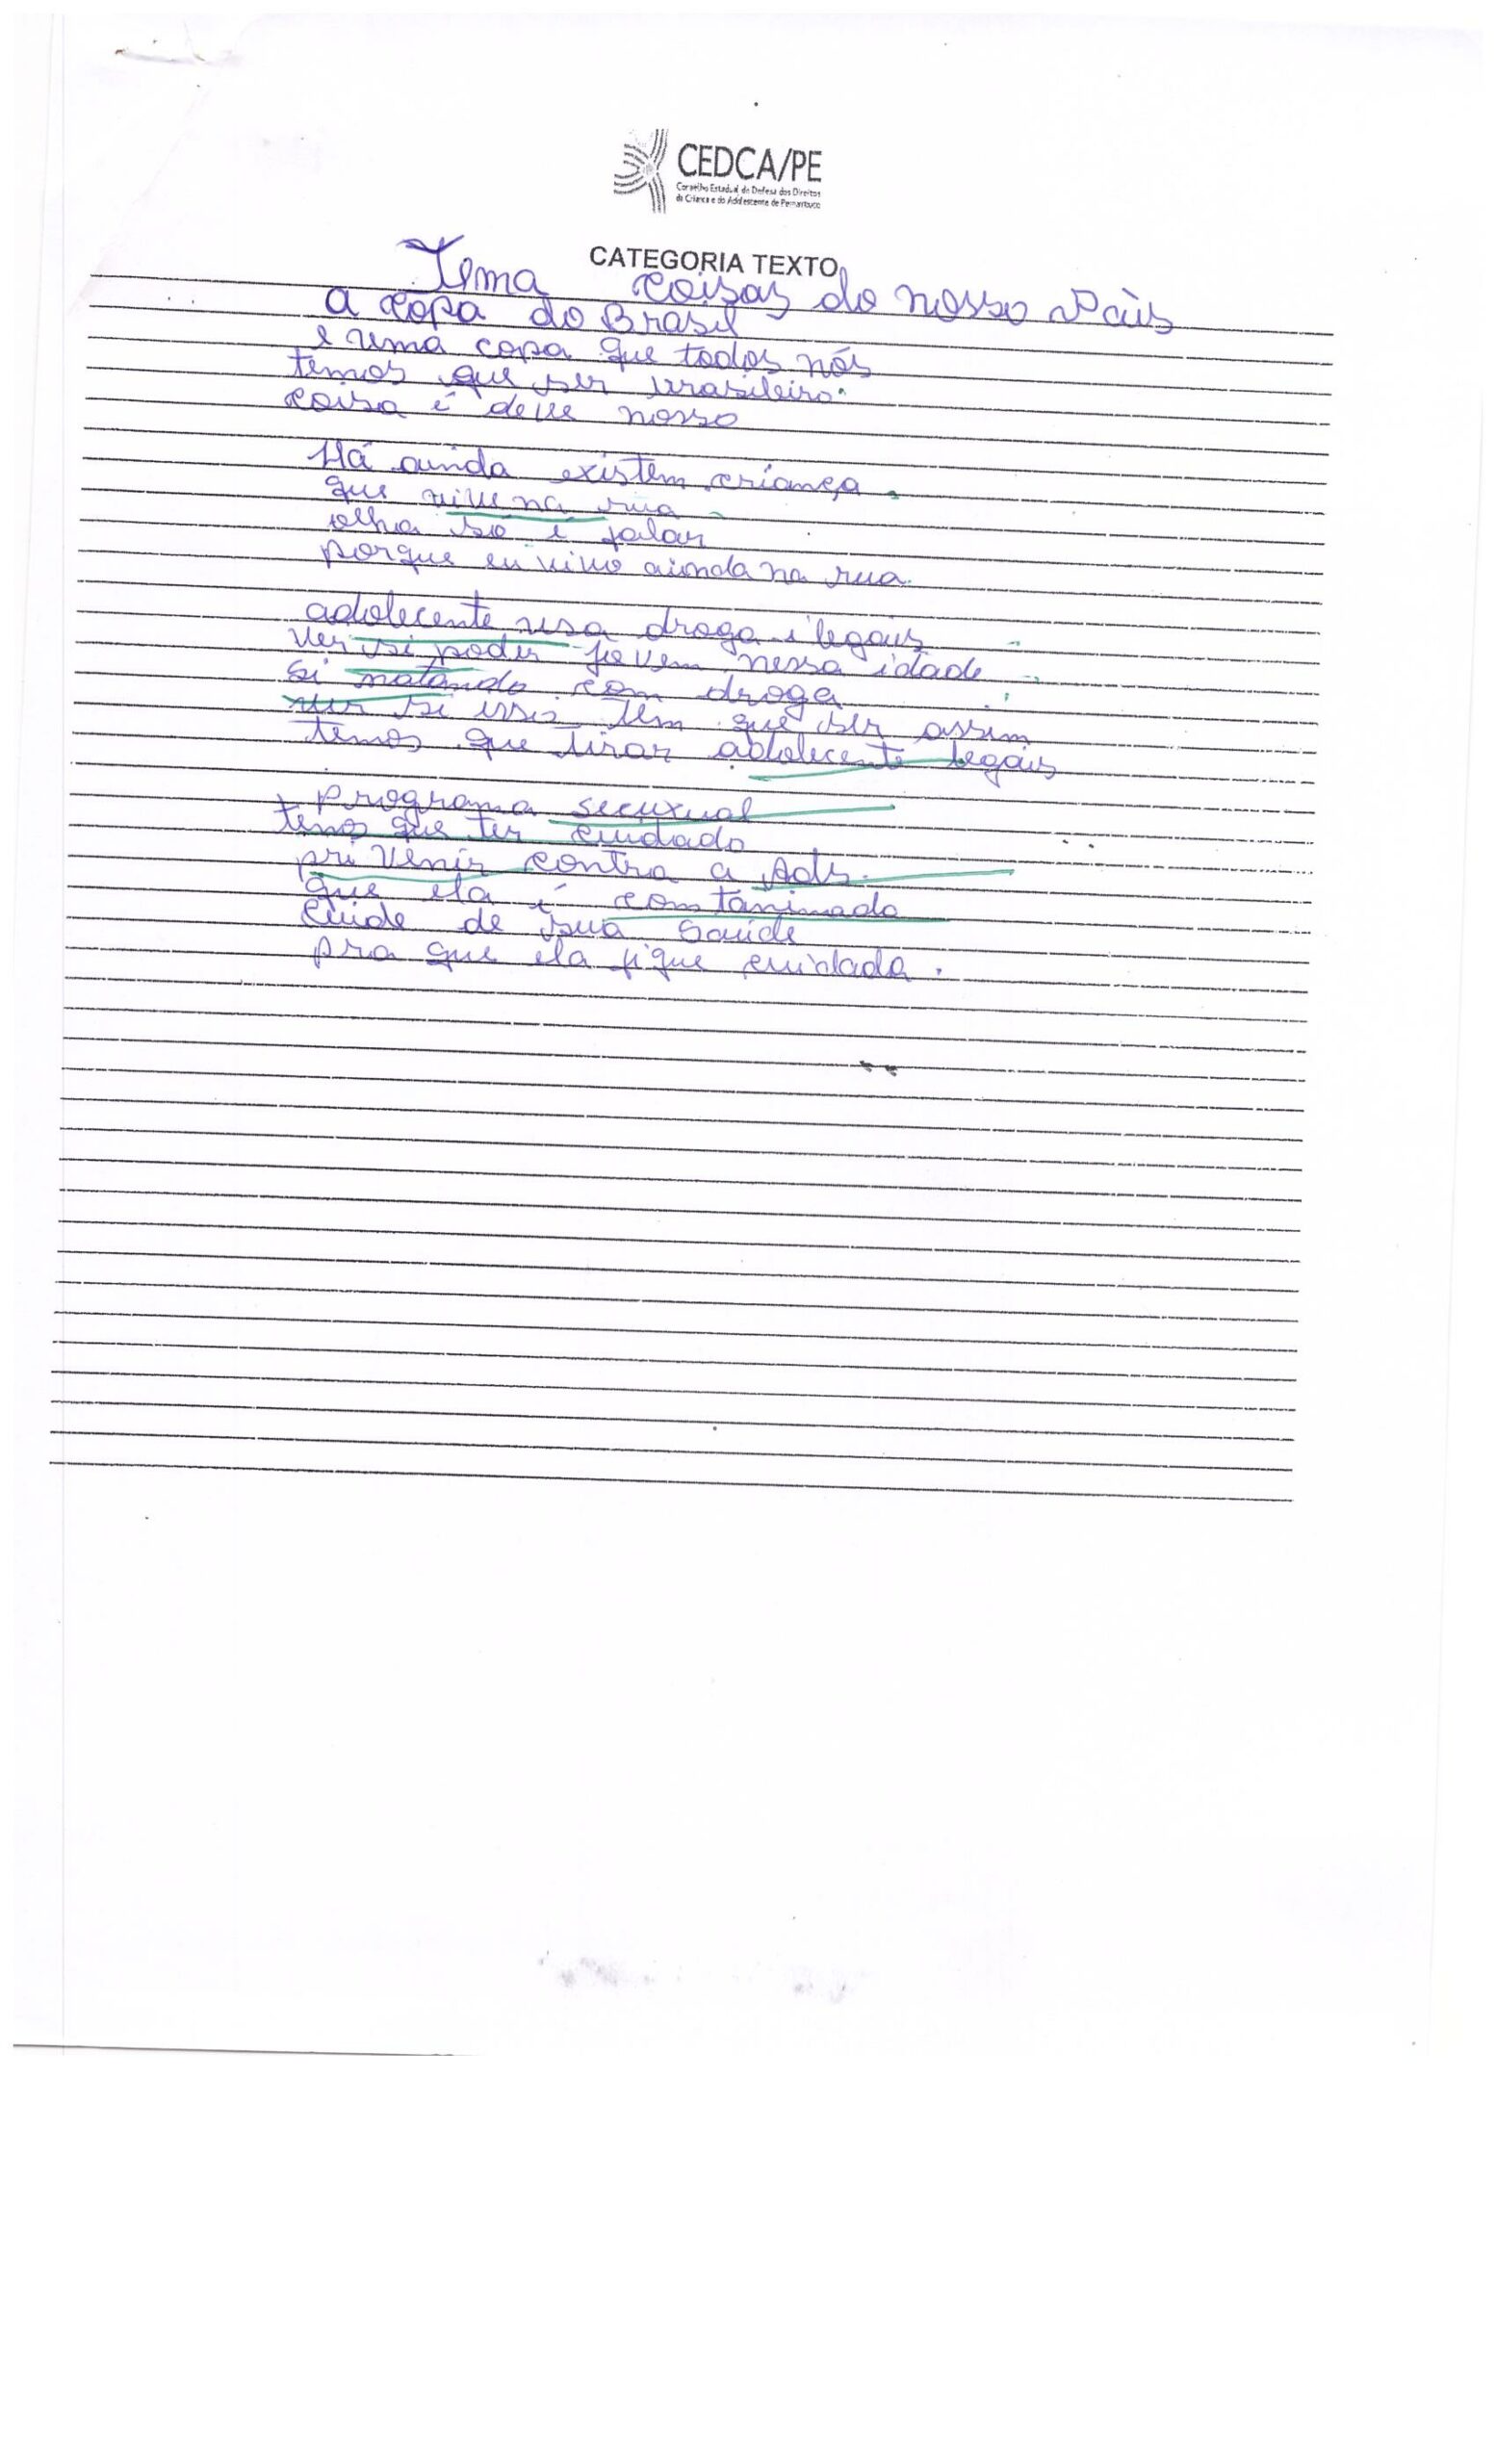 CEDCA/PE
Conselho Estadual de Defesa dos Direitos
da Criança e do Adolescente de Pernambuco
CATEGORIA TEXTO
Tema coisas do nosso Paìs
a copa do Brasil
é uma copa que todos nós
temos que ser brasileiro.
coisa é deve nosso
Há ainda existem criança
que vive na rua
olha só é falar
porque eu vivo aionda na rua.
adolecente usa droga ilegais
ver si poder jovem nessa idade
si matando com droga
ver si isso tem que ser assim
temos que tirar adolecente legais
programa secuxual
temos que ter cuidado
pri venir contra a Ads.
que ela é comtaminada
cuide de sua saúde
pra que ela fique cuidada.